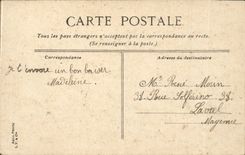 CARTE POSTALE
Tous les pays étrangers n'acceptent pas la correspondance au recto.
(Se renseigner à la poste.)
Correspondance
Adresse du Destinataire
Je t'envoie un bon baiser
Madeleine.
Mr René Morin
38 Rue Solférino 38
Laval
Mayenne